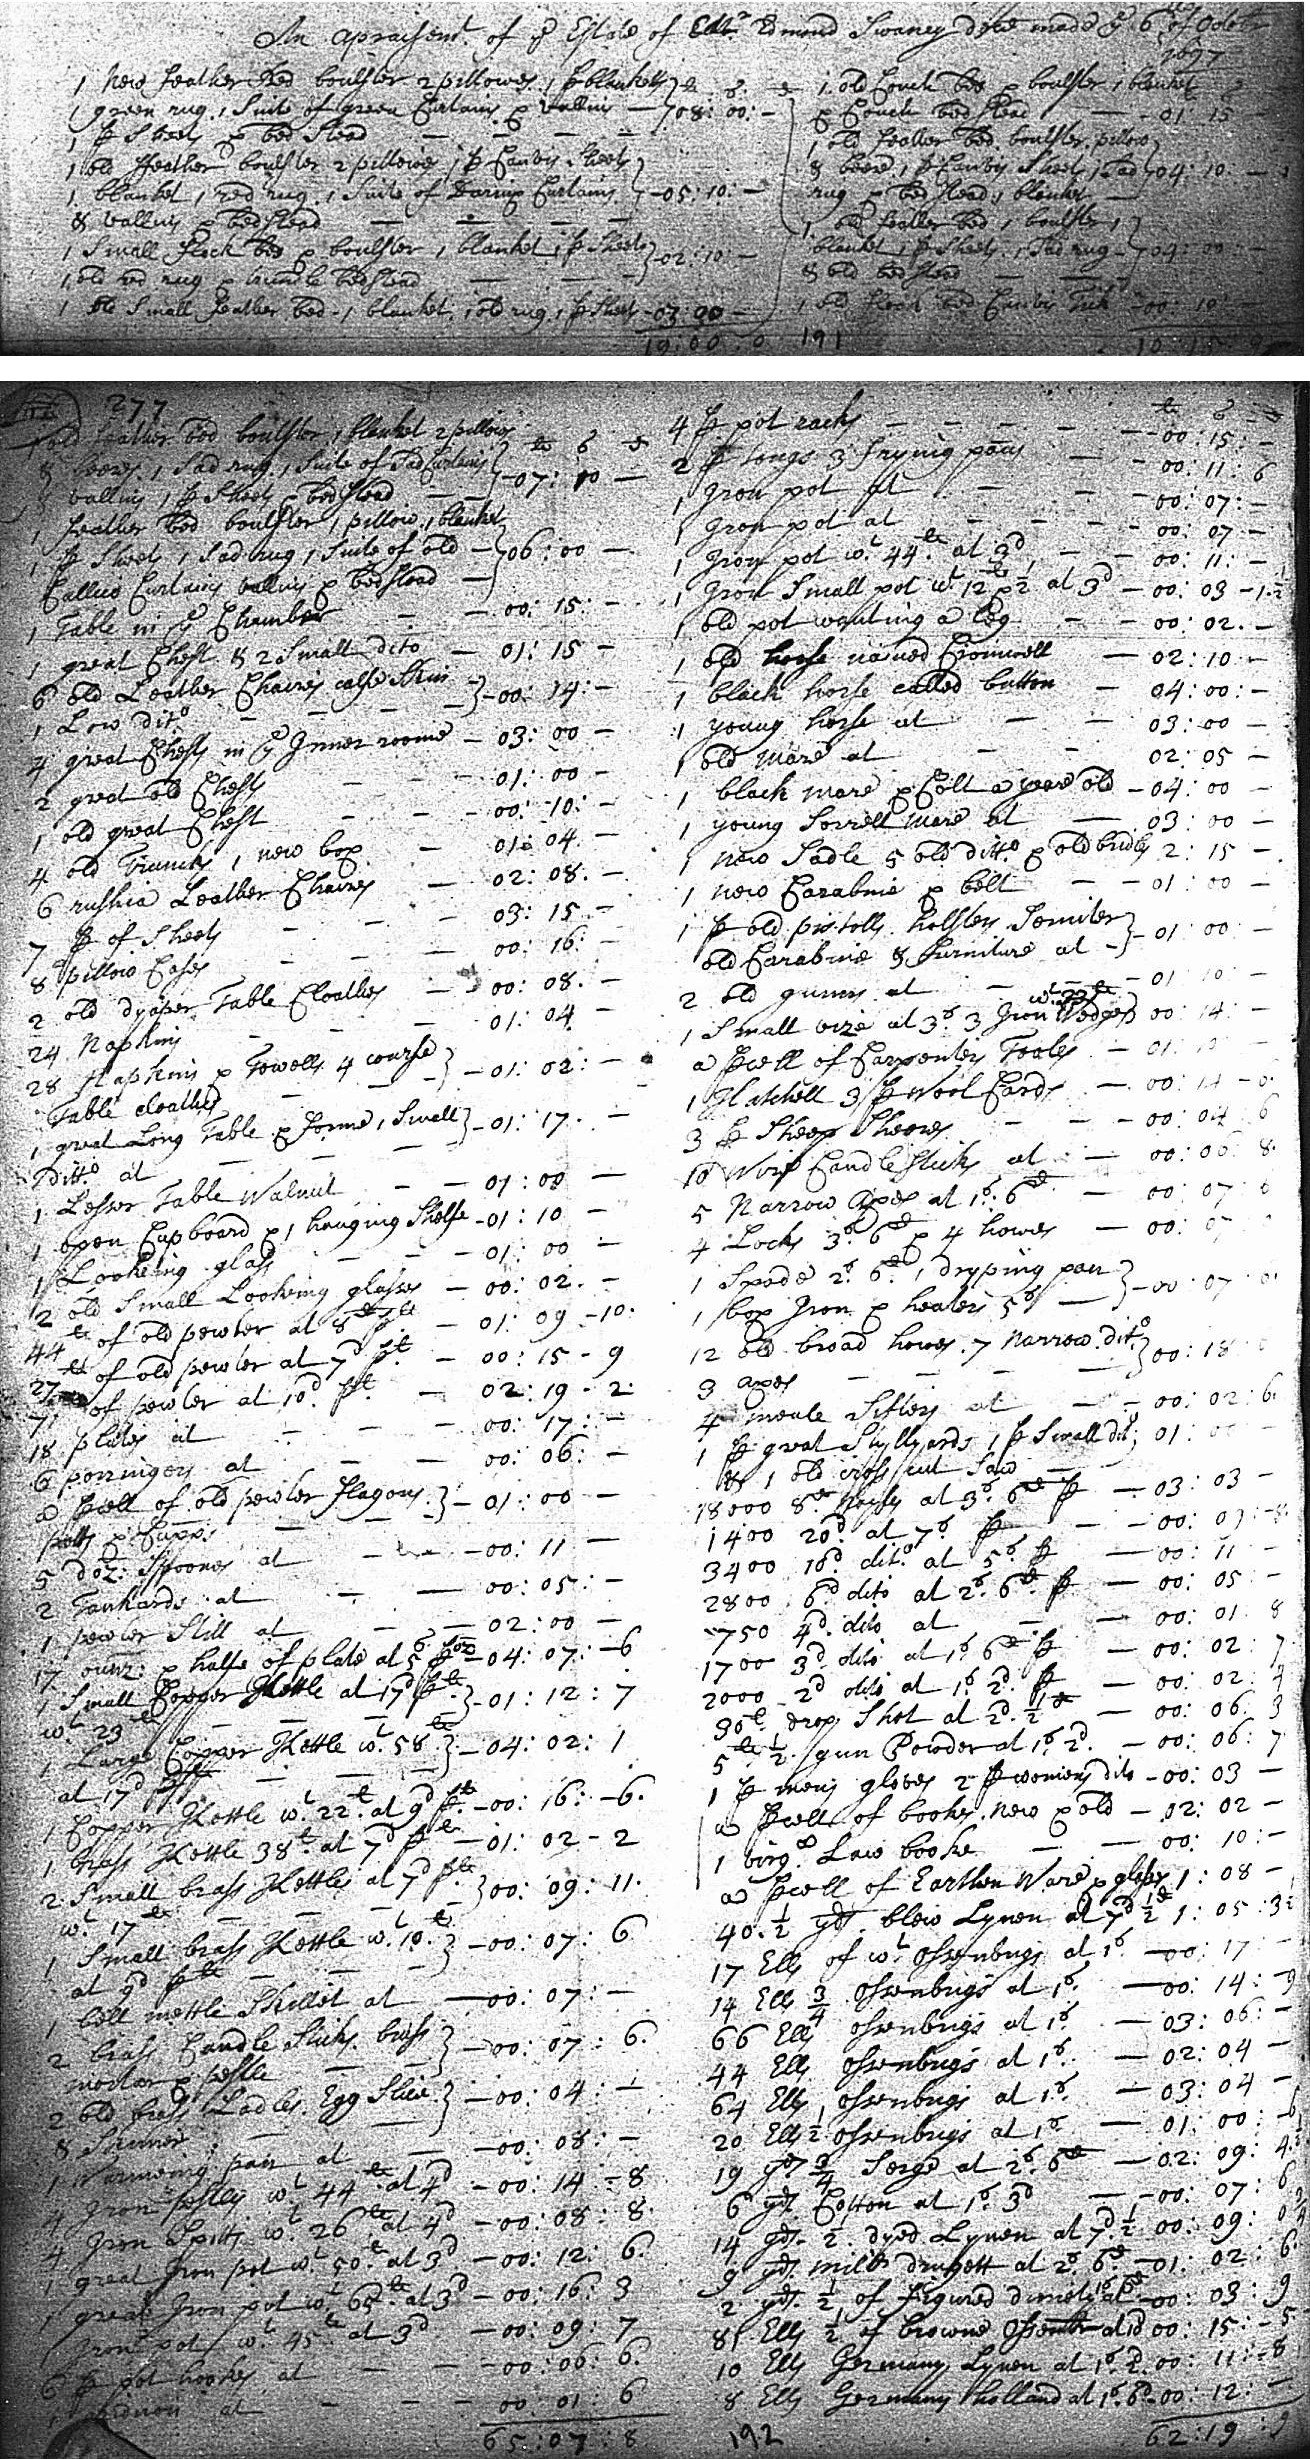 An apraisemt. of ye Estate of Edmond Swaney dece made ye 6 of Octobr
1697
1 New feather Bed boulster 2 pillowes, 1 pr blanketts
1 green rug, 1 Suite of green Curtains & vallins — 08: 00: —
1 pr Sheets & bed Stead — — —
1 old feather boulster 2 pillows, 1 pr Canvis Sheets
1 blanket, 1 red rug, 1 Suite of Curtains — 05: 10: —
& vallins & bedstead — — —
1 Small flock bed & boulster, 1 blanket, 1 pr Sheets — 02: 10: —
1 old red rug & trundle bedstead — — —
1 old Small feather bed, 1 blanket, 1 old rug, 1 pr Sheets — 03: 00 —
19: 00: 0
1 old Couch bed & boulster, 1 blanket
& Couch bed Stead — 01: 15 —
1 old feather bed, boulster, pillow
1 pr Canvis Sheets, 1 Sad — 04: 10: —
rug & bedstead, 1 blanket —
1 old feather bed, 1 boulster, 1
blanket, 1 pr Sheets, 1 Sad rug — 04: 00: —
& old bedstead — —
1 old flock bed Canvis Tick — 00: 10: —
191
10 15
277
1 old feather bed boulster, 1 blanket 2 pillows
1 Sad rug, 1 Suite of Sad Curtains — 07: 10 —
& vallins, 1 pr Sheets & bedstead — —
1 feather bed boulster, 1 pillow, 1 blanket
1 pr Sheets, 1 Sad rug, 1 Suite of old — 06: 00 —
Callico Curtains vallins & bedstead —
1 Table in ye Chamber — — 00: 15: —
1 great Chest & 2 Small dito — 01: 15 —
6 old Leather Chaires calfe Skin — 00: 14: —
1 Low dito — — —
4 great Chests in ye Inner roome — 03: 00 —
2 great old Chests — — 01: 00 —
1 old great Chest — — 00: 10: —
4 old Trunks, 1 new box — 01: 04. —
6 rushia Leather Chaires — 02: 08. —
7 pr of Sheets — — 03: 15 —
8 pillow Cases — — 00: 16: —
2 old dyaper Table Cloathes — 00: 08. —
24 Napkins — — 01: 04 —
28 Napkins & Towells 4 course — 01: 02: —
Table cloathes — —
1 great Long Table & forme, 1 Small — 01: 17. —
Ditto at — — —
1 Lesser Table Walnut — — 01: 00 —
1 open Cupboard & 1 hanging Shelfe — 01: 10 —
1 Lookeing glass — — 01: 00 —
2 old Small Lookeing glasses — 00: 02. —
44 lb of old pewter at 8d — 01: 09 — 10.
27 lb of old pewter at 7d — 00: 15 — 9
71 of pewter at 10d — 02: 19 — 2:
18 plates at — — 00: 17: —
6 porringers at — — 00: 06: —
a pcell of old pewter flagons — 01: 00 —
potts & Cupps — —
5 doz: Spoones at — — 00: 11 —
2 Tankards at — — 00: 05: —
1 pewter Still at — — 02: 00 —
17 ounz: & halfe of plate at 5s — 04: 07: — 6
1 Small Copper Kettle at 17d — 01: 12: 7
wt. 23 lb — —
1 Large Copper Kettle wt. 58 lb — 04: 02: 1
at 17d — —
1 Copper Kettle wt 22 lb at 9d — 00: 16: — 6.
1 brass Kettle 38 lb at 7d — 01: 02 — 2
2 Small brass Kettles at 7d — 00: 09: 11.
wt. 17 lb — —
1 Small brass Kettle wt. 10. lb — 00: 07: 6
at 9d — —
1 bell mettle Skillet at — 00: 07: —
2 brass Candle Sticks. brass — 00: 07: 6.
mortar & pestle — —
2 old brass Ladles. Egg Slice — 00: 04: —
& Skimer —
1 Warmeing pan at — 00: 08: —
4 Iron pestles wt 44 lb at 4d — 00: 14 — 8
4 Iron Spitts wt 26 lb at 4d — 00: 08: 8.
1 great Iron pot wt 50 lb at 3d — 00: 12: 6.
1 great Iron pot wt 65 lb at 3d — 00: 16: 3
1 Iron pot wt 45 lb at 3d — 00: 09: 7
6 pr pot hookes at — 00: 06: 6.
at — — 00: 01: 6
65: 07: 8
4 pr pot racks — — 00: 15: —
2 pr tongs 3 frying pans — 00: 11: 6
1 Iron pot at — — 00: 07: —
1 Iron pot at — — 00: 07 —
1 Iron pot wt 44 lb at 3d — 00: 11: —
1 Iron Small pot wt 12 & ½ at 3d — 00: 03 — 1½
1 old pot wanting a Leg — 00: 02. —
1 old horse named Cromwell — 02: 10 —
1 black horse called button — 04: 00: —
1 young horse at — — 03: 00 —
1 old mare at — — 02: 05 —
1 black mare & Colt a yeare old — 04: 00 —
1 young Sorrell mare at — 03: 00 —
1 new Sadle 5 old ditto & old bridles 2: 15 —
1 new Carabine & belt — 01: 00 —
1 pr old pistolls holsters Semiter
old Carabine & furniture at — 01: 00: —
2 old gunns at — — 01 10: —
1 Small vize at 3s. 3 Iron Wedges 00: 14: —
a pcell of Carpenters Tooles — 01:
1 Hatchell 3 pr Wool Cards — 00: 14 — 0
3 pr Sheep Sheares — 00: 04 6
10 Candle Sticks at — 00: 06: 8.
5 Narrow axes at 1s. 6d — 00: 07
4 Locks 3s 6d & 4 howes — 00: 07
1 Spade 2s. 6d, 1 dryping pan
1 box Iron & heaters 5s — 00 07
12 old broad howes. 7 narrow dito — 00: 18
3 axes — —
4 meale Sifters at — 00: 02: 6.
1 pr great Stillyards, 1 pr Small dito 01:
& 1 old cross cut Saw —
18000 8d Nayles at 3s. 6d — 03: 03 —
1400 20d at 7s. — 00: 09
3400 10d dito at 5s — 00: 11 —
2800 6d dito at 2s. 6d — 00: 05 —
750 4d. dito at — 00: 01 8
1700 3d dito at 1s 6d — 00: 02: 7
2000 2d dito at 1s. 2d. — 00: 02: 4
30 lb drop Shot at 2d. ½ — 00: 06: 3
5 lb ½ gun Powder at 1s. 2d. — 00: 06: 7
1 pr mens gloves 2 pr womens dito — 00: 03 —
a pcell of bookes. new & old — 02: 02 —
1 virga Law booke — 00: 10: —
a pcell of Earthen Ware & glasses 1: 08 —
40. ½ yds. blew Lynen at 7d ½ 1: 05: 3¾
17 Ells of wt Osenbrigs at 1s. — 00: 17: —
14 Ells ¾ Osenbrigs at 1s. — 00: 14: — 9
66 Ells Osenbrigs at 1s. — 03: 06: —
44 Ells Osenbrigs at 1s. — 02: 04 —
64 Ells Osenbrigs at 1s — 03: 04 —
20 Ells ½ Osenbrigs at 1s. — 01: 00: — 6
19 yds ¾ Serge at 2s. 6d — 02: 09: 4.
6 yds. Cotton at 1s. 3d — 00: 07: 6
14 yds. ½. dyed Lynen at 7d. ½ 00: 09: 0¾
9 yds mill'd druggett at 2s. 6d — 01: 02: 6.
2 yds. ½ of figured dimety at 1s 6d — 00: 03: 9
of browne at 00: 15: — 5
10 Ells Germany Lynen at 1s. 2d. 00: 11: — 8
8 Ells Germany holland at 1s. 6d — 00: 12: —
192
62: 19: 9